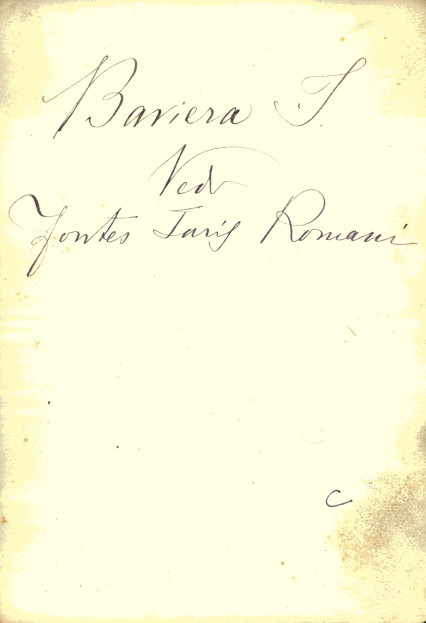 Baviera J.
Vedi
Fontes Juris Romani
c